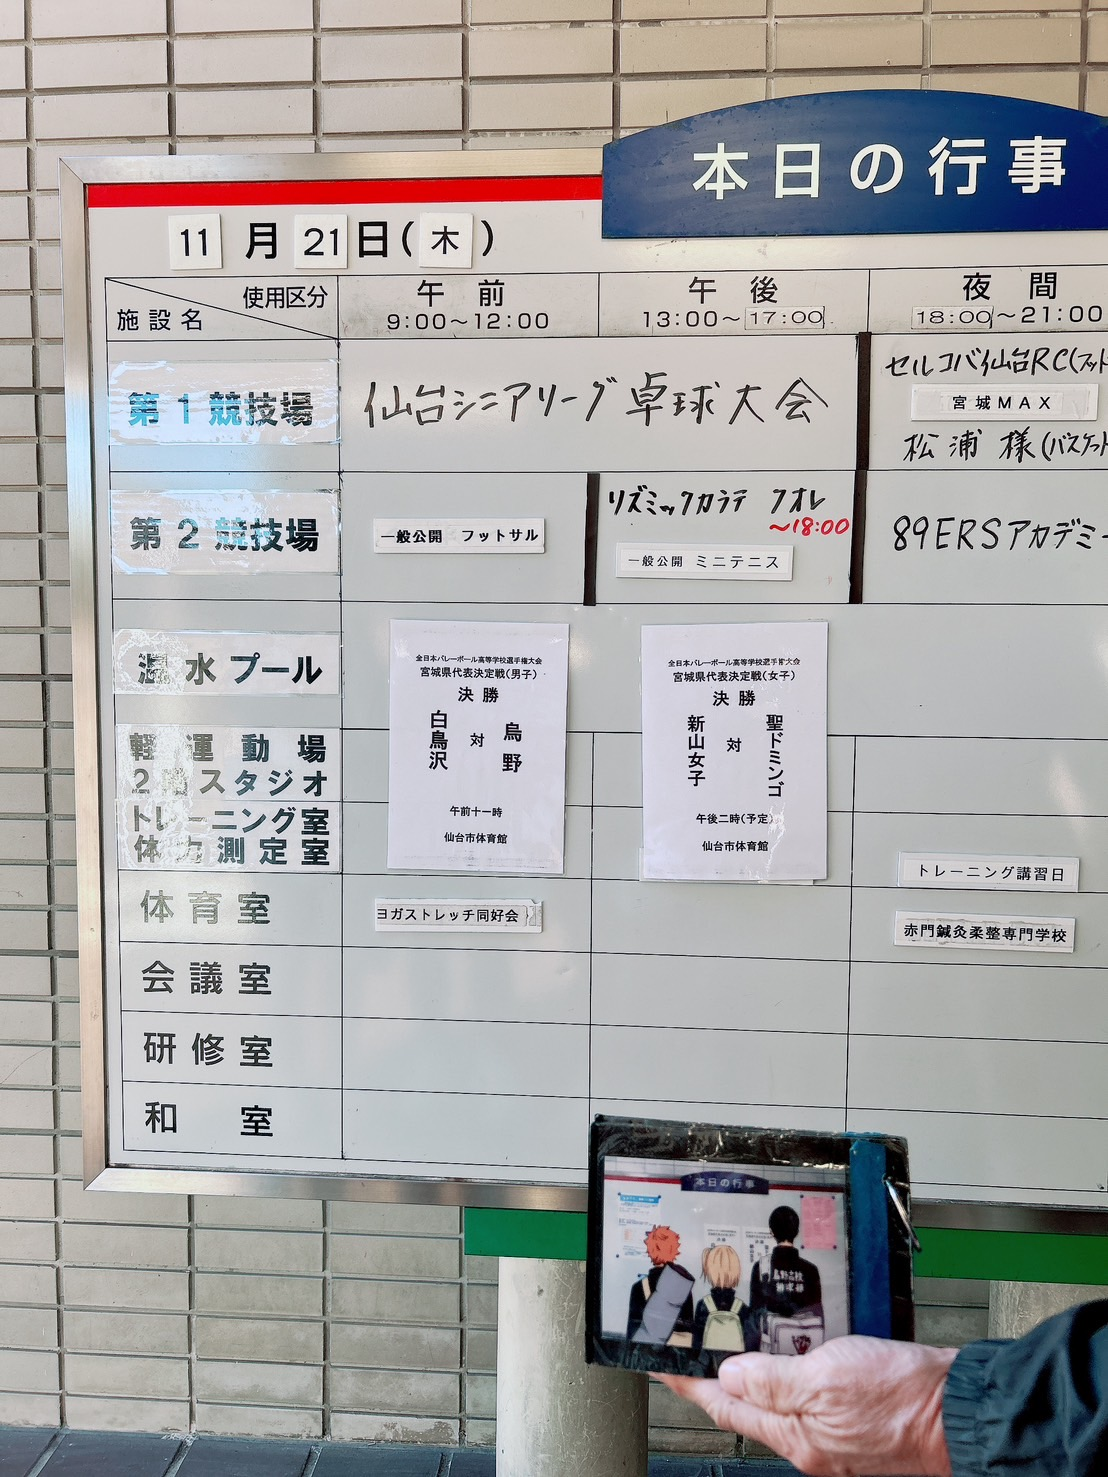 本日の行事
11月21日(木)
使用区分
施設名
午前
9:00〜12:00
午後
13:00〜17:00
夜間
18:00〜21:00
第1競技場
仙台シニアリーグ卓球大会
セルコバ仙台RC(フット
宮城MAX
松浦様(バスケット
第2競技場
一般公開 フットサル
リズミックカラテ フオレ
〜18:00
一般公開 ミニテニス
89ERSアカデミー
温水プール
全日本バレーボール高等学校選手権大会
宮城県代表決定戦(男子)
決勝
烏野
対
白鳥沢
午前十一時
仙台市体育館
全日本バレーボール高等学校選手権大会
宮城県代表決定戦(女子)
決勝
聖ドミンゴ
対
新山女子
午後二時(予定)
仙台市体育館
軽運動場
2階スタジオ
トレーニング室
体力測定室
トレーニング講習日
体育室
ヨガストレッチ同好会
赤門鍼灸柔整専門学校
会議室
研修室
和室
本日の行事
決勝
決勝
烏野高校
排球部